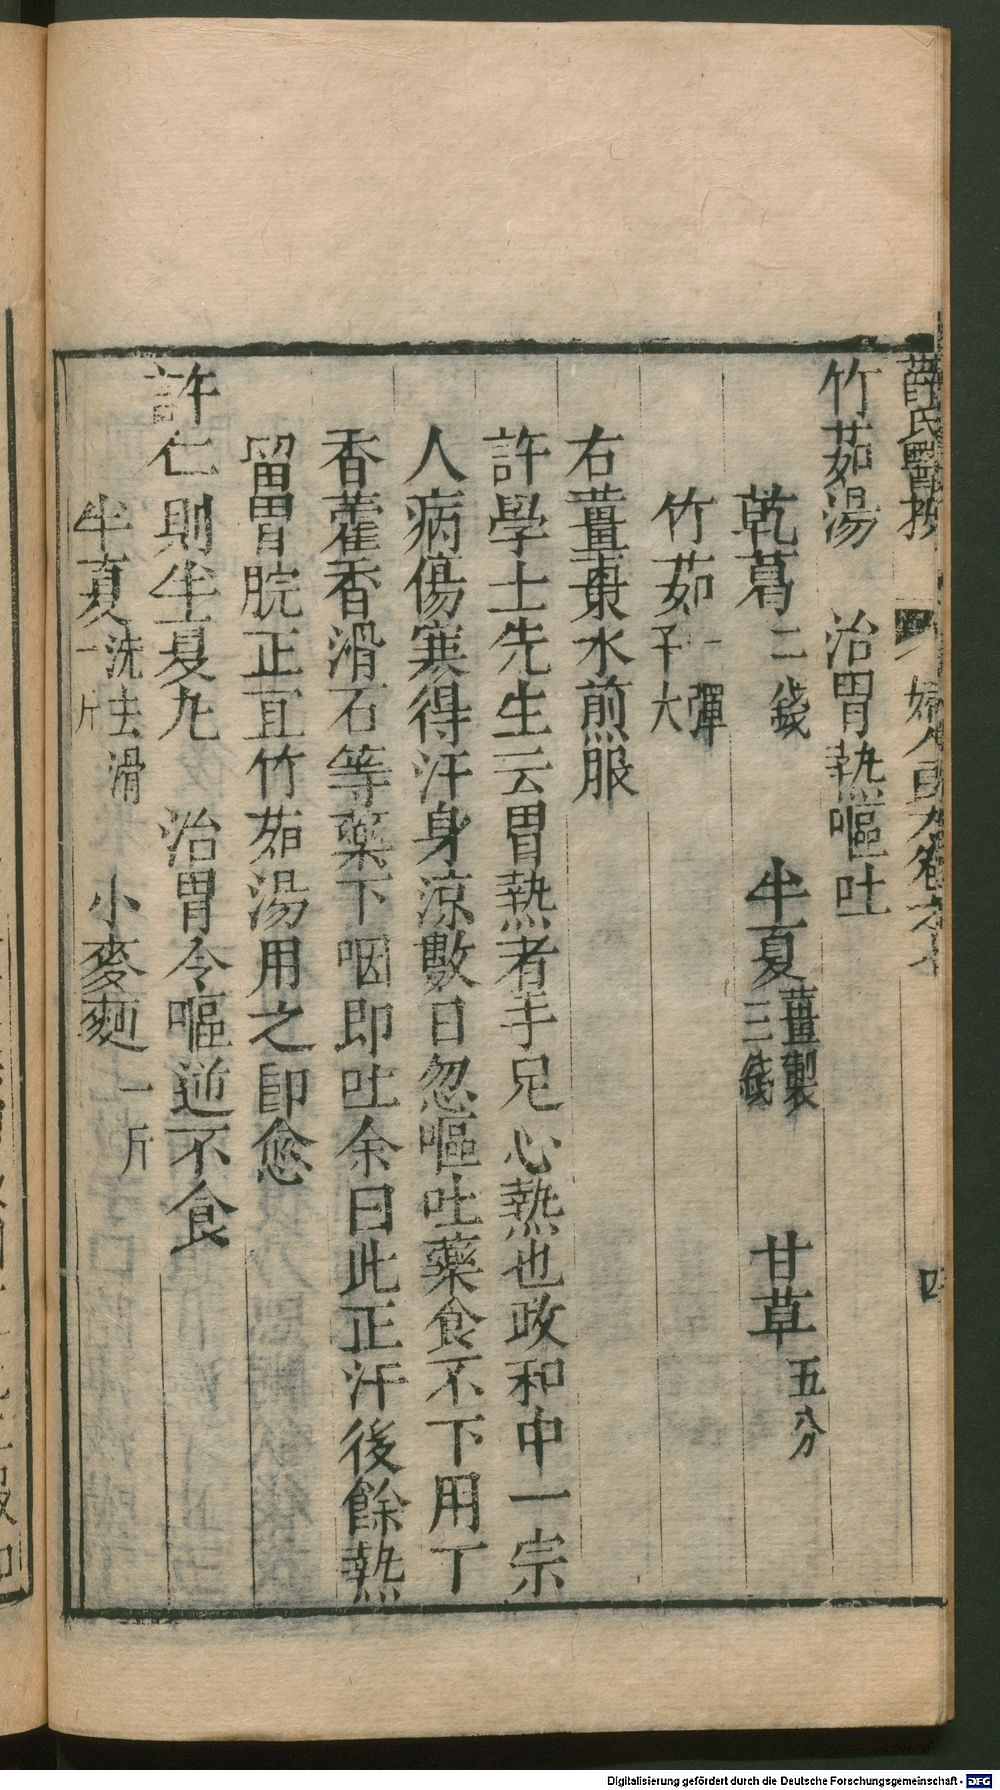 薛氏醫按
婦人良方卷之十
四
竹茹湯　治胃熱嘔吐
乾葛二錢　半夏薑製三錢　甘草五分
竹茹一彈子大
右薑棗水煎服
許學士先生云胃熱者手足心熱也政和中一宗
人病傷寒得汗身涼數日忽嘔吐藥食不下用丁
香藿香滑石等藥下咽即吐余曰此正汗後餘熱
留胃脘正宜竹茹湯用之即愈
許仁則半夏丸　治胃令嘔逆不食
半夏洗去滑一斤　小麥麵一斤
Digitalisierung gefördert durch die Deutsche Forschungsgemeinschaft - DFG